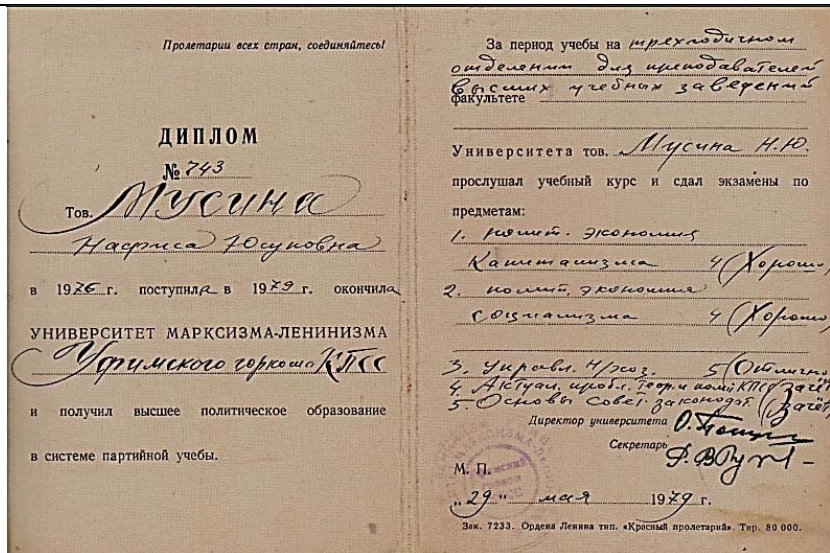 Пролетарии всех стран, соединяйтесь!
ДИПЛОМ
№ 743
Тов. Мусина
Нафиса Юсуповна
в 1976 г. поступила в 1979 г. окончила
УНИВЕРСИТЕТ МАРКСИЗМА-ЛЕНИНИЗМА
Уфимского горкома КПСС
и получил высшее политическое образование
в системе партийной учебы.
За период учебы на трехгодичном
отделении для преподавателей
высших учебных заведений
факультете
Университета тов. Мусина Н.Ю.
прослушал учебный курс и сдал экзамены по
предметам:
1. полит. экономия
капитализма 4 (Хорошо)
2. полит. экономия
социализма 4 (Хорошо)
3. Управл. н/хоз. 5 (Отлично)
4. Актуал. пробл. теор. и полит. КПСС (зачёт)
5. Основы Совет. законодат. (зачёт)
Директор университета
Секретарь
М. П.
„29" мая 1979 г.
Зак. 7233. Ордена Ленина тип. «Красный пролетарий». Тир. 80 000.